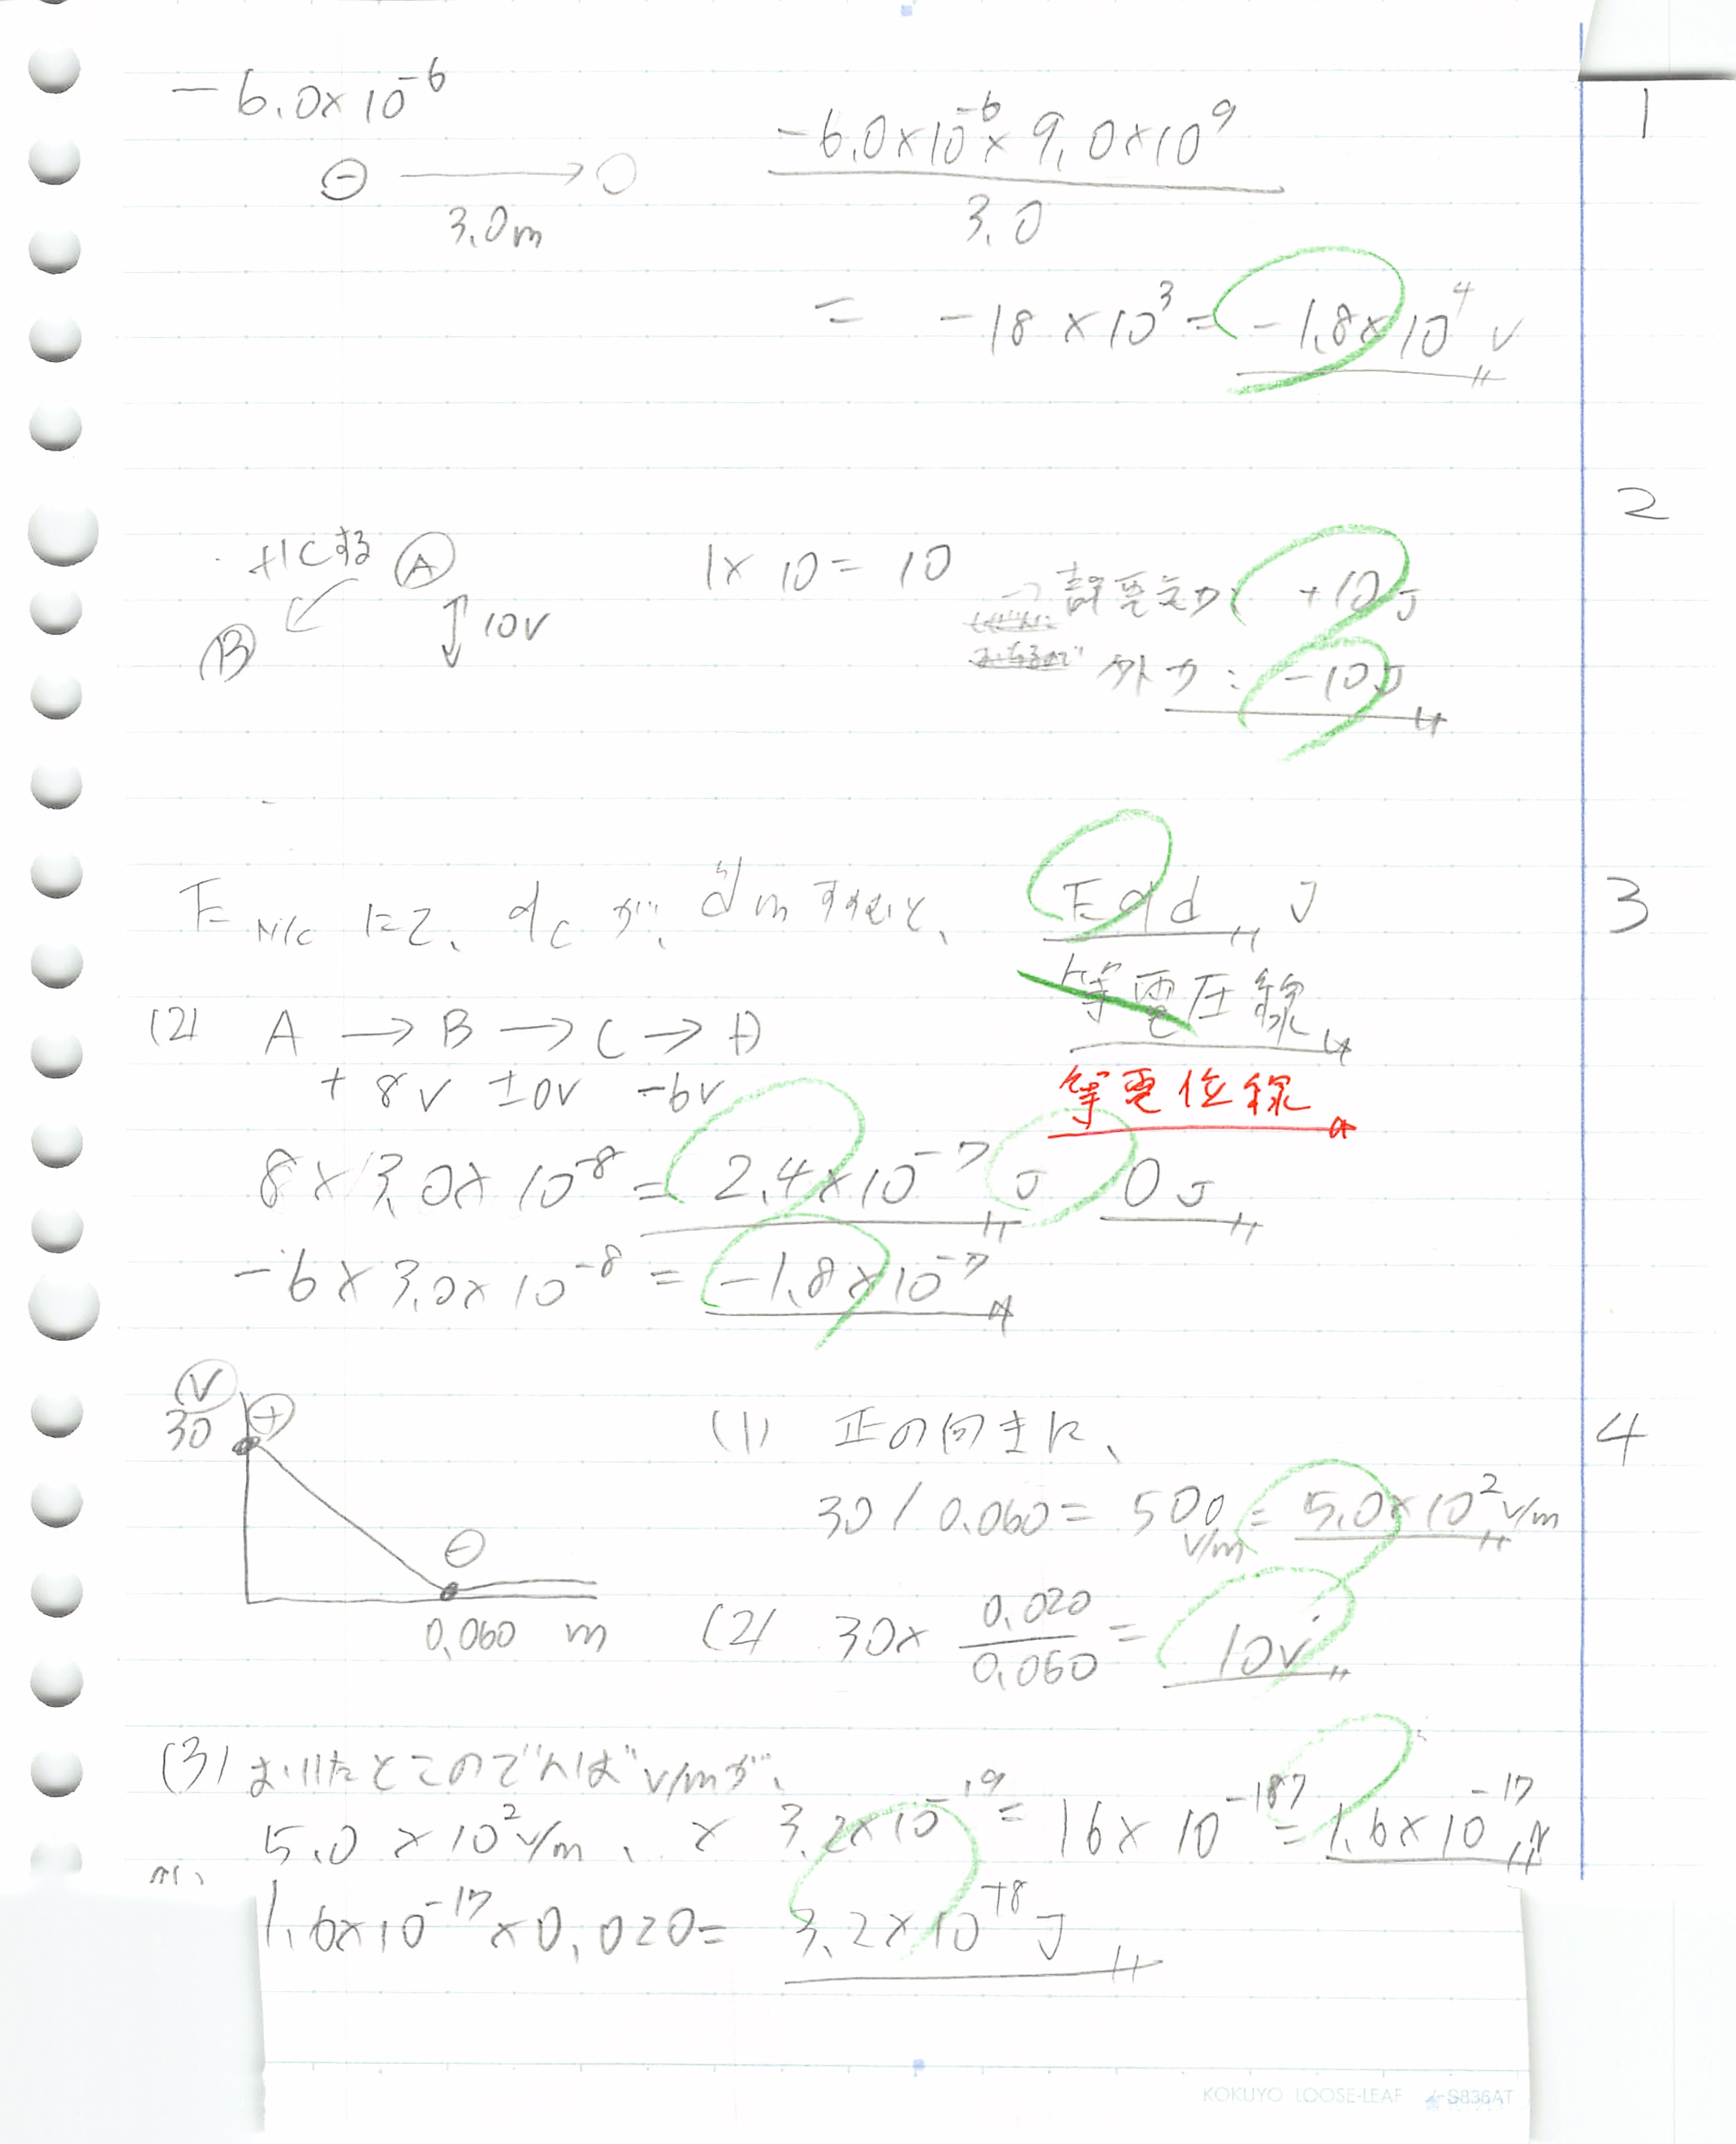 1
-6.0×10^-6
⊖ → ○
3.0m
-6.0×10^-6 × 9.0×10^9
3.0
= -18×10^3 = -1.8×10^4 V
2
+1Cする Ⓐ
Ⓑ
↕10V
1×10=10
静電気力: +10J
外力: -10J
3
E N/C にて、qc が、dm すすむと、 Eqd J
等電圧線
等電位線
(2) A → B → C → D
+8V ±0V -6V
8×3.0×10^-8 = 2.4×10^-7 J 0J
-6×3.0×10^-8 = -1.8×10^-7
4
V
30 ⊕
⊖
0.060 m
(1) 正の向きに、
30/0.060 = 500 V/m = 5.0×10^2 V/m
(2) 30× 0.020/0.060 = 10V
(3) おいたとこのでんば V/mが、
5.0×10^2 V/m、 × 3.2×10^-19 = 16×10^-187 = 1.6×10^-17 N
1.6×10^-17×0.020= 3.2×10^-18 J
KOKUYO LOOSE-LEAF S836AT